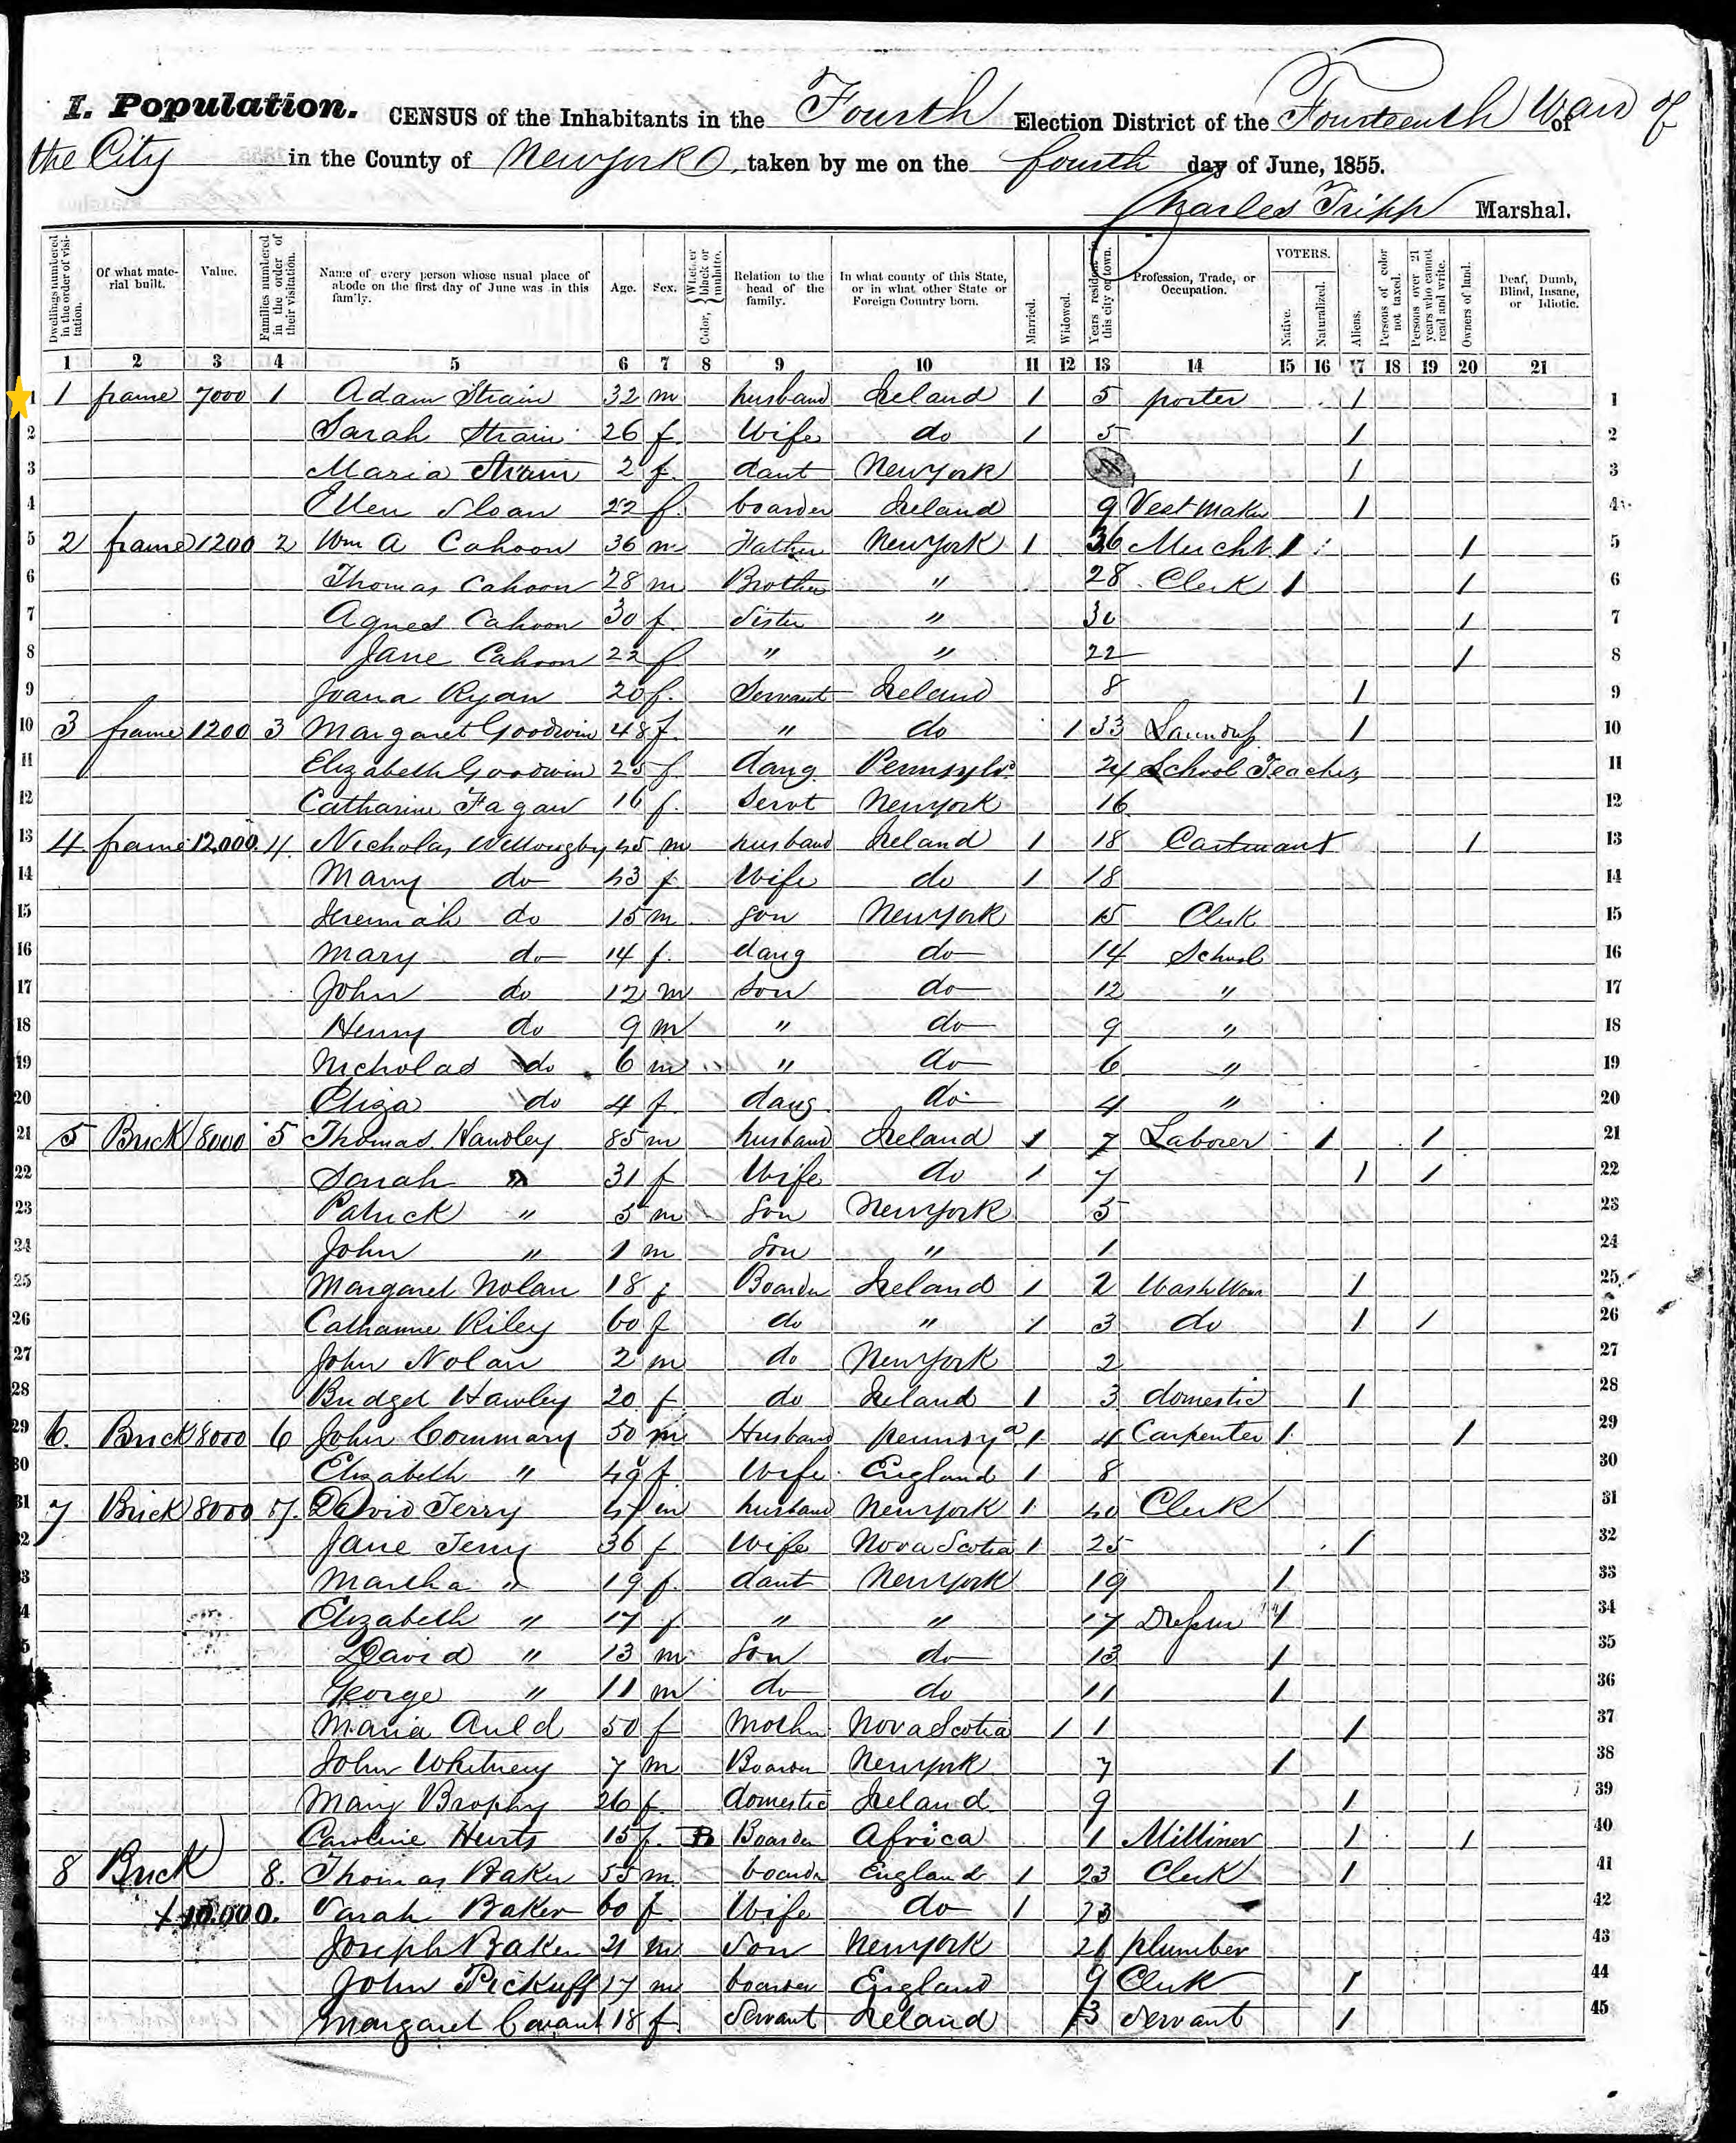 I. Population. CENSUS of the Inhabitants in the Fourth Election District of the Fourteenth Ward of of
the City in the County of New York, taken by me on the fourth day of June, 1855.
Charles Tripp Marshal.
Dwellings numbered in the order of visitation. Of what material built. Value. Families numbered in the order of their visitation. Name of every person whose usual place of abode on the first day of June was in this family. Age. Sex. Color, Whether black or mulatto. Relation to the head of the family. In what county of this State, or in what other State or Foreign Country born. Married. Widowed. Years resident in this city or town. Profession, Trade, or Occupation. VOTERS. Native. Naturalized. Aliens. Persons of color not taxed. Persons over 21 years who cannot read and write. Owners of land. Deaf, Dumb, Blind, Insane, or Idiotic.
1 2 3 4 5 6 7 8 9 10 11 12 13 14 15 16 17 18 19 20 21
1 1 frame 7000 1 Adam Strain 32 m husband Ireland 1 5 porter 1 1
2 Sarah Strain 26 f Wife do 1 5 1 2
3 Maria Strain 2 f daut New York 1 3
4 Ellen Sloan 22 f boarder Ireland 9 Vest Maker 1 4
5 2 frame 1200 2 Wm A Cahoon 36 m Father New York 1 36 Mercht 1 1 5
6 Thomas Cahoon 28 m Brother " 28 Clerk 1 1 6
7 Agnes Cahoon 30 f Sister " 30 1 7
8 Jane Cahoon 22 f " " 22 1 8
9 Joana Ryan 20 f Servant Ireland 8 1 9
10 3 frame 1200 3 Margaret Goodwin 48 f " do 1 33 1 10
11 Elizabeth Goodwin 25 f daug Pennsylv 24 School Teacher 11
12 Catharine Fagan 16 f Servt New York 16 12
13 4 frame 12,000 4 Nicholas Willougby 45 m husband Ireland 1 18 1 13
14 Mary do 43 f Wife do 1 18 14
15 Jeremiah do 15 m Son New York 15 Clerk 15
16 Mary do 14 f daug do 14 School 16
17 John do 12 m Son do 12 " 17
18 Henry do 9 m " do 9 " 18
19 Nicholas do 6 m " do 6 " 19
20 Eliza do 4 f daug do 4 " 20
21 5 Brick 8000 5 Thomas Handley 85 m husband Ireland 1 7 Laborer 1 1 21
22 Sarah " 31 f Wife do 1 7 1 1 22
23 Patrick " 5 m Son New York 5 23
24 John " 1 m Son " 1 24
25 Margaret Nolan 18 f Boarder Ireland 1 2 Wash Wom 1 25
26 Catharine Riley 60 f do " 1 3 do 1 1 26
27 John Nolan 2 m do New York 2 27
28 Bridget Hawley 20 f do Ireland 1 3 domestic 1 28
29 6 Brick 8000 6 John Commary 50 m Husband Pennsya 1 4 Carpenter 1 1 29
30 Elizabeth " 49 f Wife England 1 8 30
31 7 Brick 8000 7 David Terry 47 m husband New York 1 40 Clerk 31
32 Jane Terry 36 f Wife Nova Scotia 1 25 1 32
33 Martha " 19 f daut New York 19 1 33
34 Elizabeth " 17 f " " 17 1 34
35 David " 13 m Son do 13 1 35
36 George " 11 m do do 11 1 36
Maria Auld 50 f Mother Nova Scotia 1 1 1 37
John Whitney 7 m Boarder New York 7 1 38
Mary Brophy 26 f domestic Ireland 9 1 39
Caroline Hurts 15 f B Boarder Africa 1 Milliner 1 1 40
8 Brick 8 Thomas Baker 55 m boarder England 1 23 Clerk 1 41
10.000. Sarah Baker 60 f Wife do 1 23 42
Joseph Baker 21 m Son New York 21 plumber 43
John Pickuff 17 m boarder England 9 Clerk 1 44
Margaret 18 f Servant Ireland 3 Servant 1 45